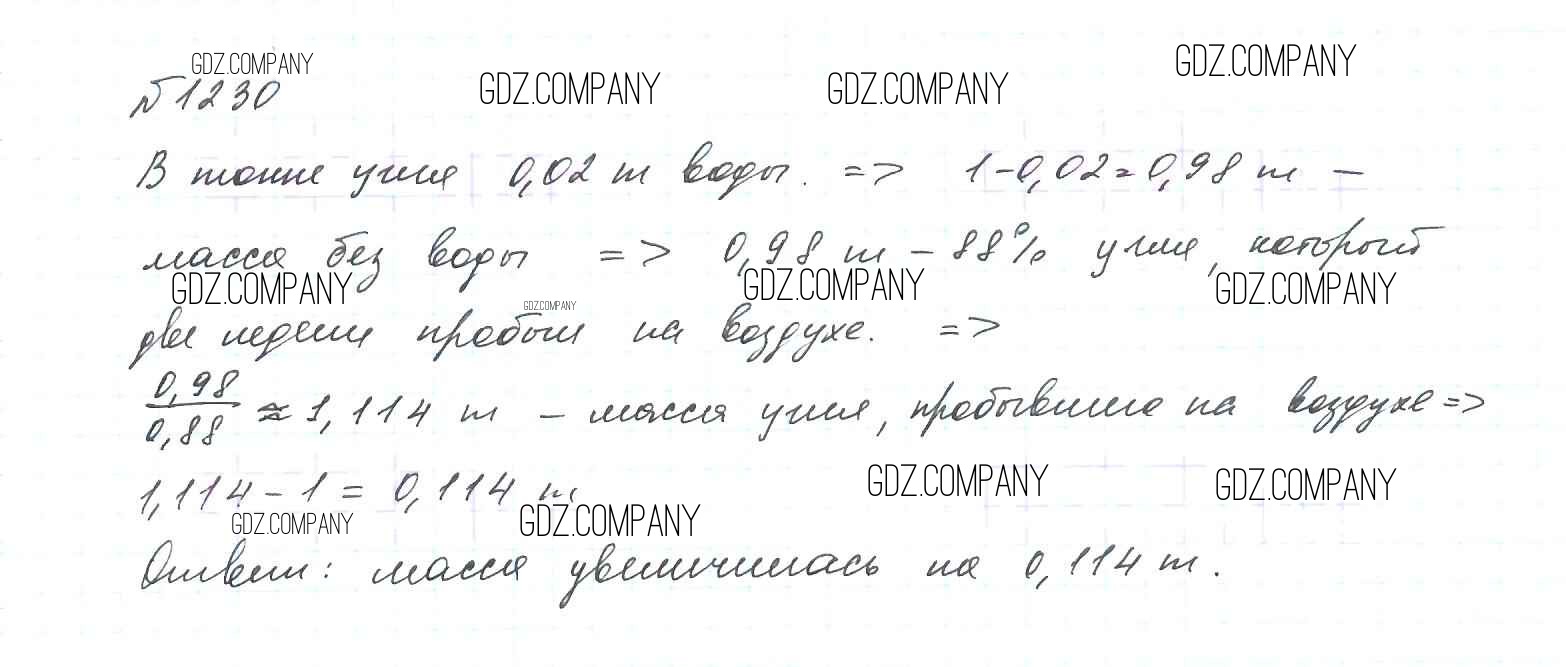 GDZ.COMPANY
GDZ.COMPANY GDZ.COMPANY GDZ.COMPANY
№ 1230
В тонне угля 0,02 т воды. => 1-0,02=0,98 т –
масса без воды => 0,98 т – 88% угля, который
GDZ.COMPANY GDZ.COMPANY GDZ.COMPANY
GDZ.COMPANY
две недели пробыл на воздухе. =>
0,98/0,88 ≈ 1,114 т – масса угля, пробывшего на воздухе =>
1,114 – 1 = 0,114 т
GDZ.COMPANY GDZ.COMPANY
GDZ.COMPANY GDZ.COMPANY
Ответ: масса увеличилась на 0,114 т.